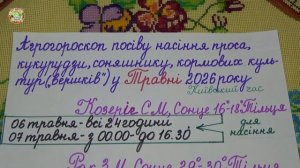 Агрогороскоп посіву насіння проса,
кукурудзи, соняшнику, кормових куль-
тур ("вершків") у Травні 2026 року
Київський час
Козеріг С.М, Сонце 16°-18° Тільця
06 травня - всі 24 години
07 травня - з 00.00 - до 16.30
для
насіння
Сонце 29°-30° Тільця